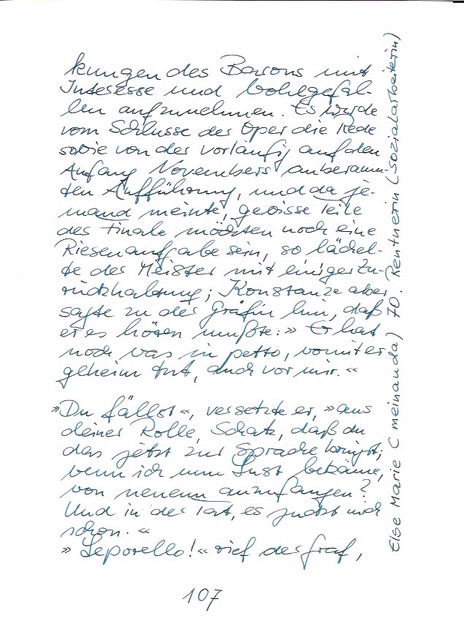 kungen des Barons mit
Interesse und Wohlgefal-
len aufzunehmen. Es wurde
vom Schlusse der Oper die Rede
sowie von der vorläufig auf den
Anfang Novembers anberaum-
ten Aufführung, und da je-
mand meinte, gewisse Teile
des Finale möchten noch eine
Riesenaufgabe sein, so lächel-
te der Meister mit einiger Zu-
rückhaltung; Konstanze aber
sagte zu der Gräfin hin, daß
er es hören mußte: » Er hat
noch was in petto, womit er
geheim tut, auch vor mir. «
»Du fällst «, versetzte er, »aus
deiner Rolle, Schatz, daß du
das jetzt zur Sprache bringst;
wenn ich nun Lust bekäme,
von neuem anzufangen?
Und in der Tat, es juckt mich
schon. «
» Leporello! « rief der Graf,
107
Else Marie ( meinanda) 70. Rentnerin (Sozialarbeiterin)